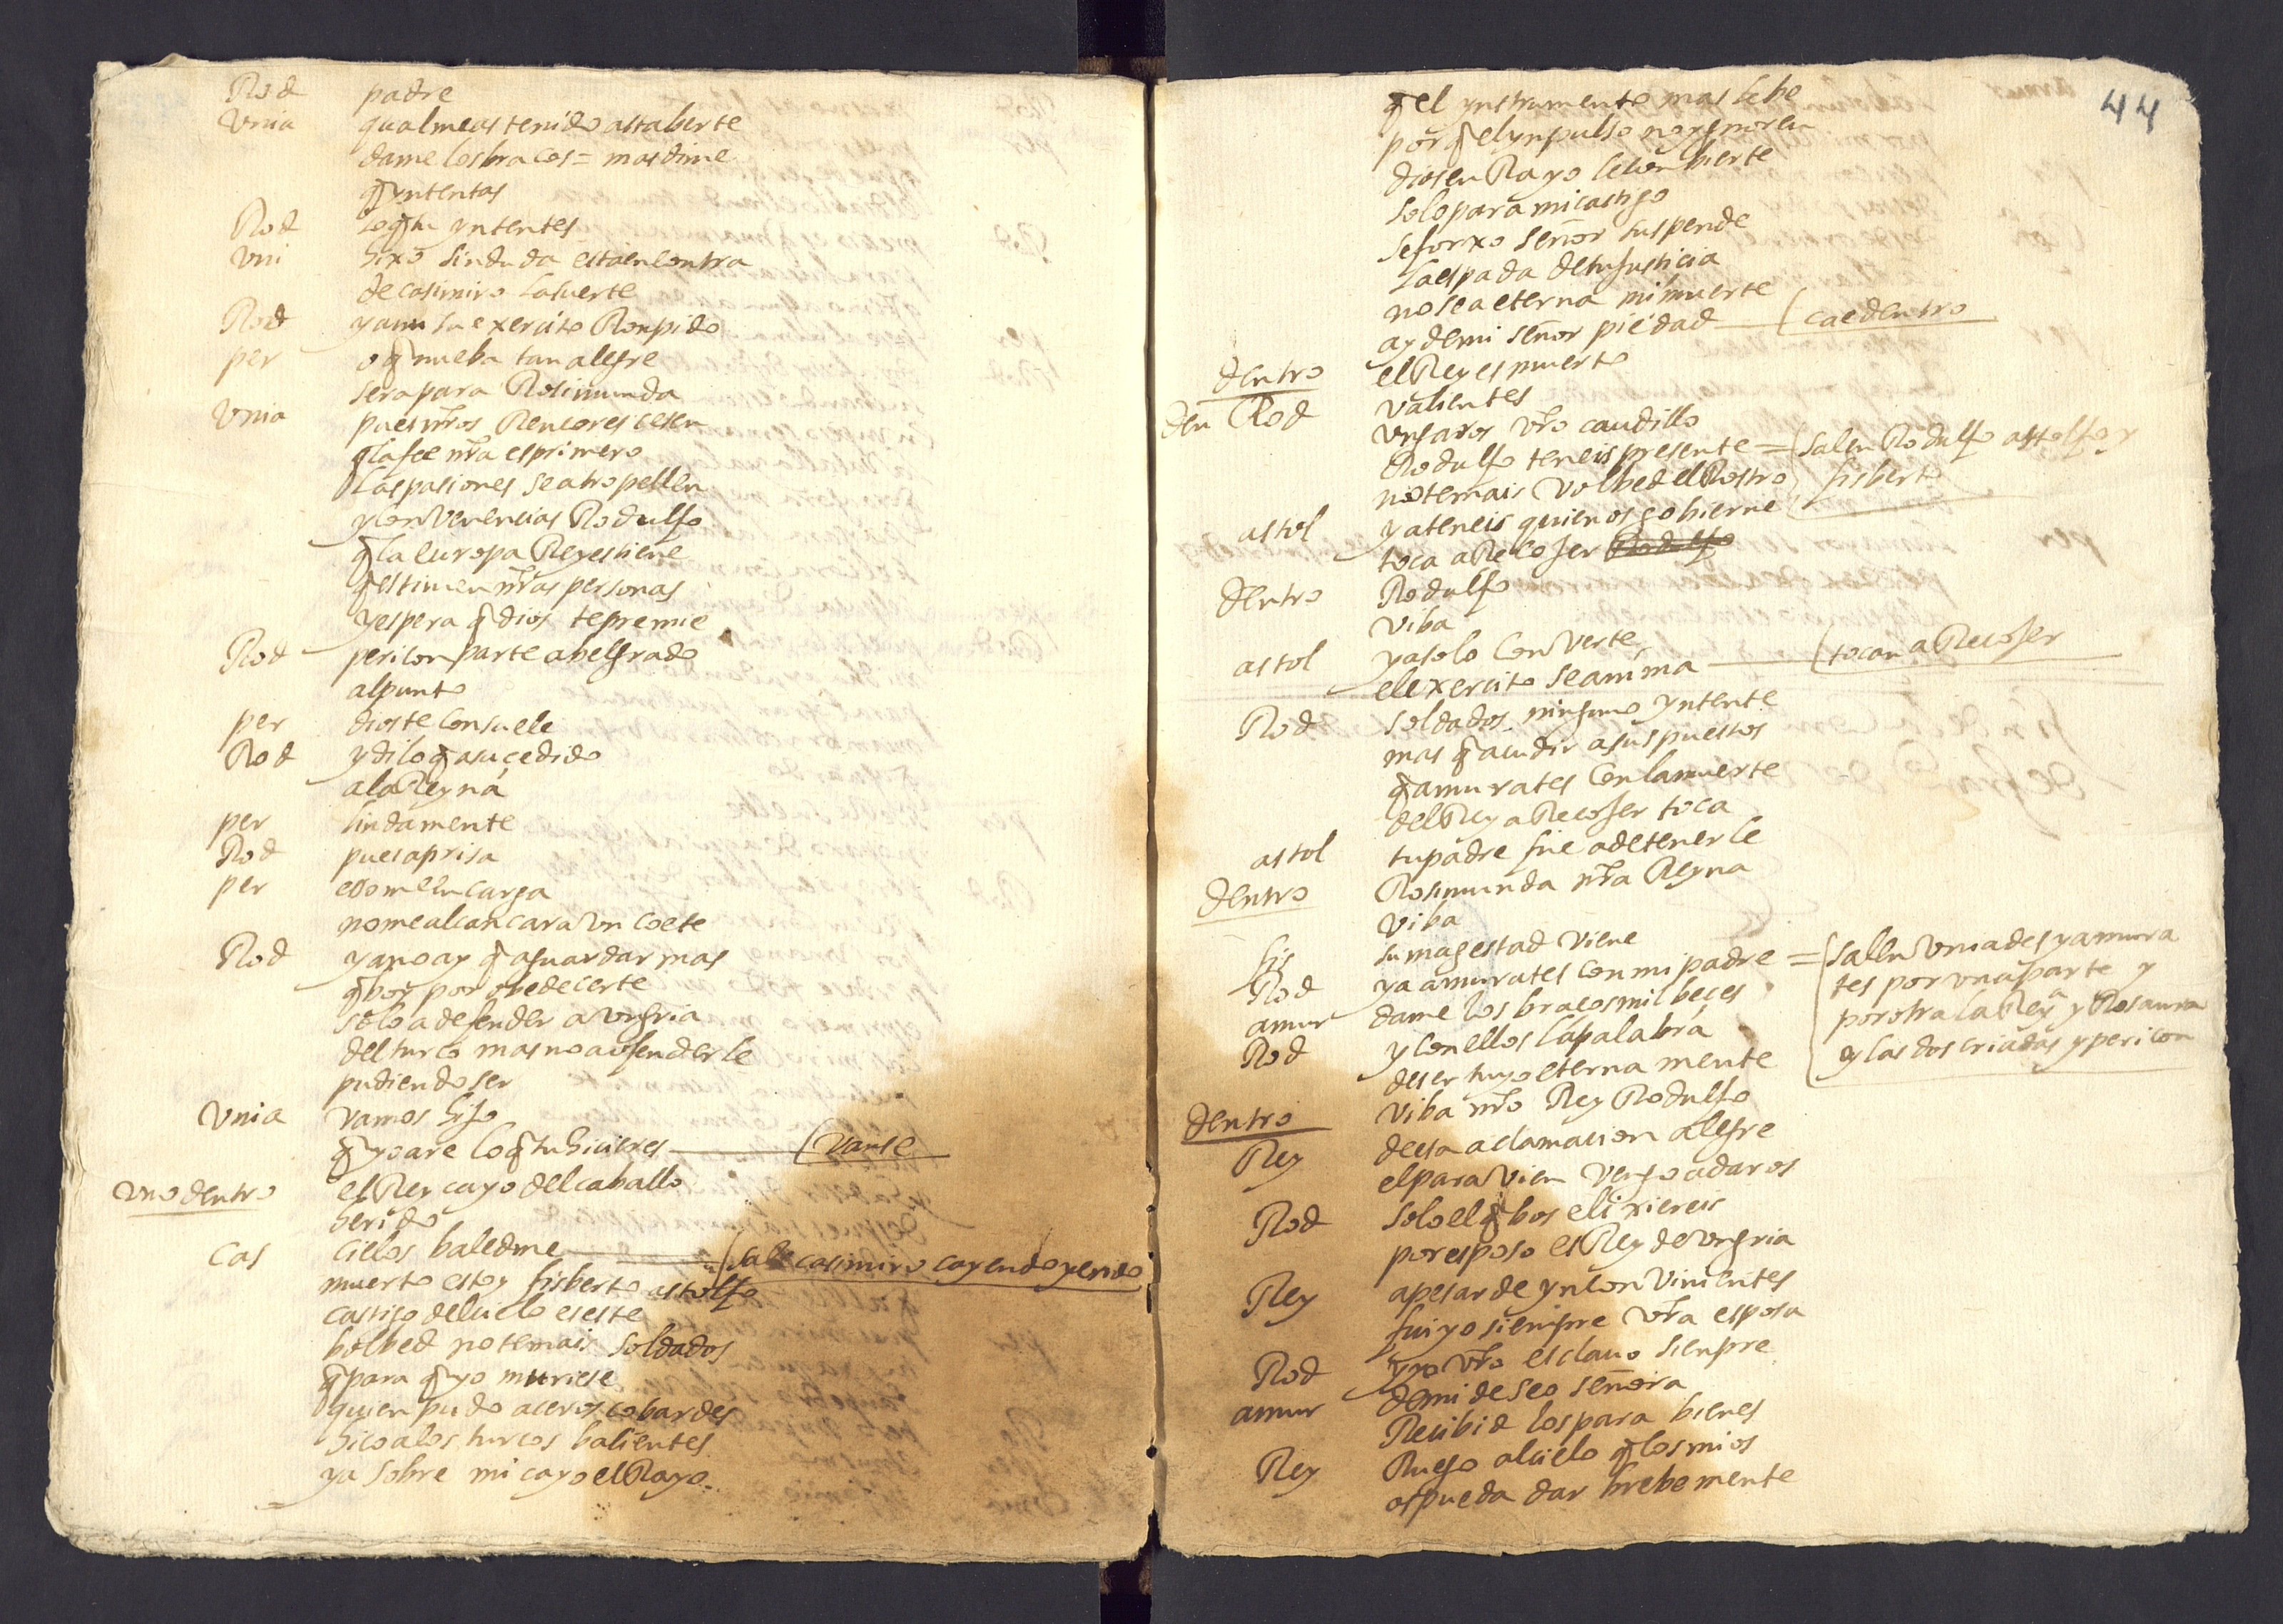 Rod padre
Vnia qual me as tenido asta berte
dame los bracos = mas dime
q̃ yntentas
Rod lo q̃ tu yntentes
Vni hixo sin duda esta en contra
de casimiro la suerte
Rod y aun su exercito Ronpido
per o q̃ nueba tan alegre
sera para Rosimunda
Vnia pues nr̃os Rencores cesen
q̃ la fee nr̃a es primero
las pasiones se atropellen
y con Venencias Rodulfo
q̃ la europa Reyes tiene
q̃ estimen nr̃as personas
y espera q̃ dios te premie
Rod pericon parte a belgrado
al punto
per dios te consuele
Rod y di lo q̃ a suçedido
a la Reyna
per lindamente
Rod pues aprisa
per eso me encarga
no me alcancara Vn coete
Rod ya no ay q̃ aguardar mas
q̃ boy por obedecerte
solo a defender a Vngria
del turco mas no a ofenderle
pudiendo ser
Vnia Vamos hijo
q̃ yo are lo q̃ tu hicieres (Vanse
Vno dentro el Rey cayo del caballo
herido
cas cielos baledme (sale casimiro cayendo y erido
muerto estoy fisberto astolfo
castigo del cielo es este
bolbed no temais soldados
q̃ para q̃ yo muriese
quien pudo aceros cobardes
hico a los turcos balientes
ya sobre mi cayo el Rayo
44
q̃ el ynstrumento mas lebe
por q̃ el ynpulso no ygnoren
dios en Rayo le conbierte
solo para mi castigo
se forxo señor suspende
la espada de tu justicia
no sea eterna mi muerte
ay de mi señor piedad (cae dentro
dentro el Rey es muerto
den Rod Valientes
Vngaros Vr̃o caudillo
Rodulfo teneis presente = (salen Rodulfo astolfo y
no temais Volbed el Rostro fisberto
astol ya teneis quien os gobierne
toca a Recojer Rodulfo
dentro Rodulfo
Viba
astol ya solo con Verte
el exercito se anima (tocan a Recojer
Rod soldados ninguno yntente
mas q̃ acudir a sus puestos
q̃ amurates con la muerte
del Rey a Recojer toca
astol tu padre fue a detenerle
dentro Rosimunda nr̃a Reyna
Viba
fis su magestad Viene
Rod ya amurates con mi padre = (salen Vniades y amura
amur dame los bracos mil beçes tes por vna parte y
Rod y con ellos la palabra por otra la Reyª y Rosaura
de ser tuyo eterna mente y las dos criadas y pericon
dentro Viba nr̃o Rey Rodulfo
Rey de esta aclamacion alegre
el para Vien Vengo a daros
Rod solo el q̃ bos elixiereis
por esposo es Rey de Vngria
Rey a pesar de ynconVinientes
fui yo siempre Vr̃a esposa
Rod y yo Vr̃o esclauo sienpre
amur de mi deseo señora
Recibid los para bienes
Rey Ruego al cielo q̃ los mios
os pueda dar brebemente